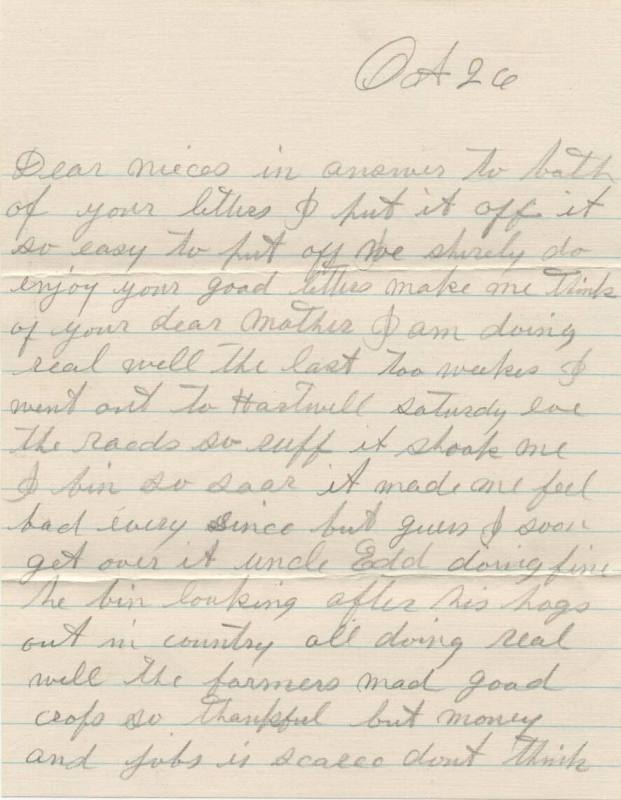 Oct 26
Dear nieces in answer to both
of your letters I put it off it
so easy to put off We shirely do
enjoy your good letters make me think
of your dear Mother I am doing
real well the last too weekes I
went out to Hartwell saturdy eve
the roads so ruff it shook me
I bin so soar it made me feel
bad every since but guess I soon
get over it uncle Edd doing fine
he bin looking after his hogs
out in country all doing real
well the farmers mad good
crops so thankful but money
and jobs is scarce dont think